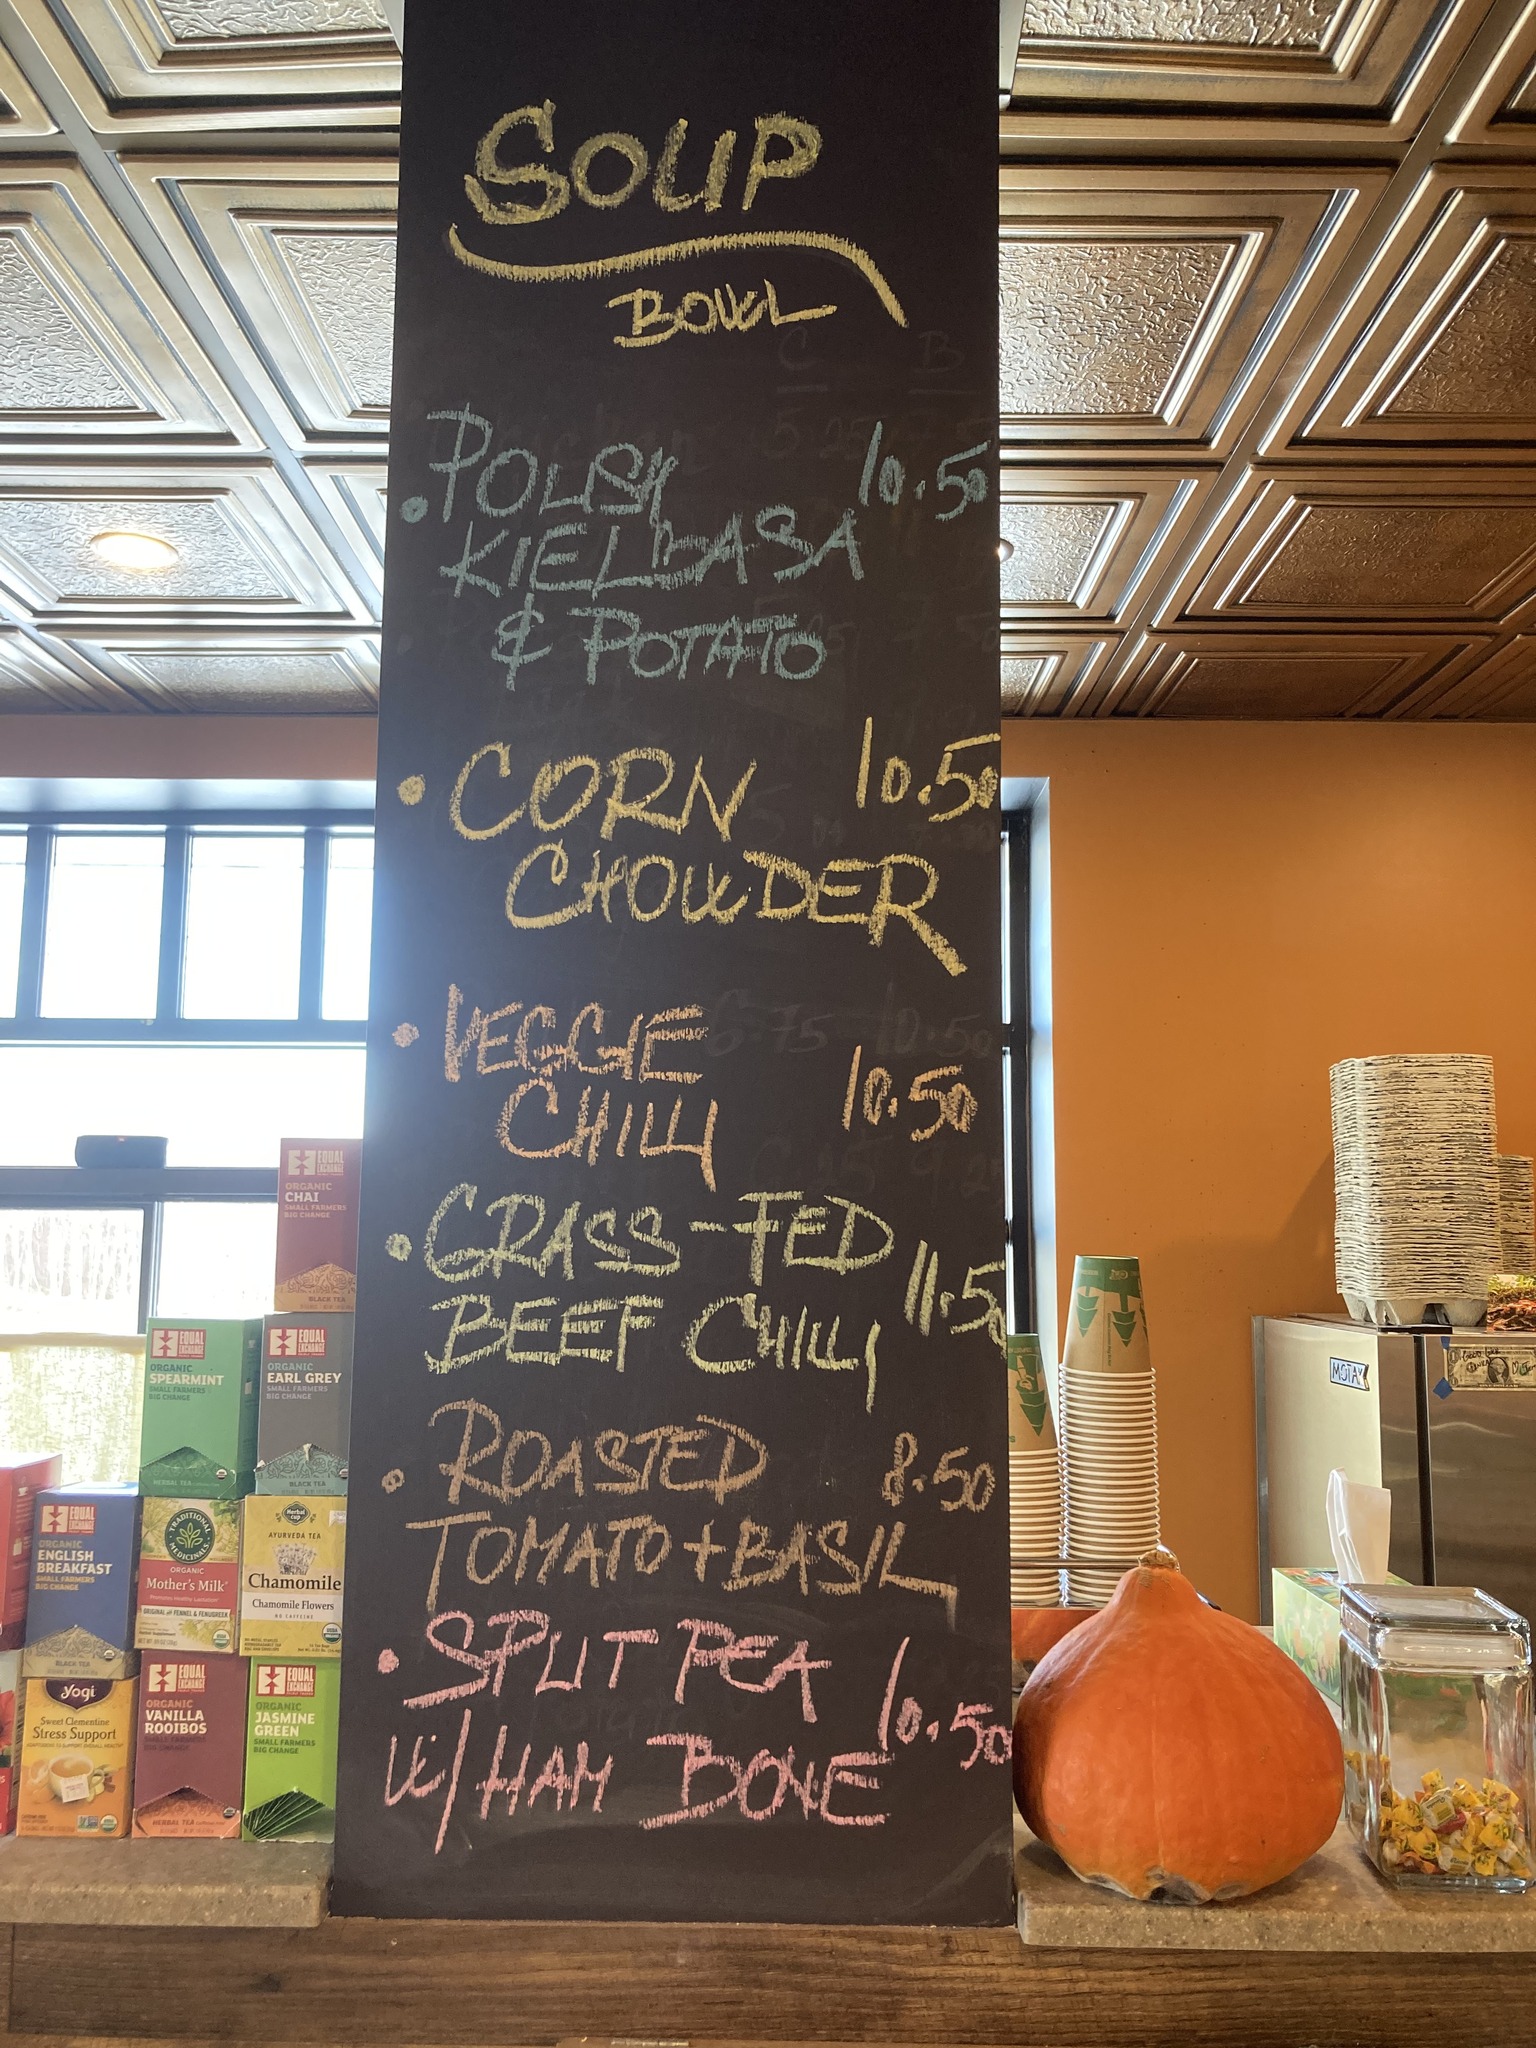 SOUP
BOWL
• POLISH 10.50
KIELBASA
& POTATO
• CORN 10.50
CHOWDER
• VEGGIE
CHILI 10.50
• GRASS-FED
BEEF CHILI 11.50
• ROASTED 8.50
TOMATO + BASIL
• SPLIT PEA
W/ HAM BONE 10.50
EQUAL
EXCHANGE
ORGANIC
CHAI
SMALL FARMERS
BIG CHANGE
BLACK TEA
EQUAL
EXCHANGE
ORGANIC
SPEARMINT
SMALL FARMERS
BIG CHANGE
HERBAL TEA
EQUAL
EXCHANGE
ORGANIC
EARL GREY
SMALL FARMERS
BIG CHANGE
BLACK TEA
EQUAL
EXCHANGE
ORGANIC
ENGLISH
BREAKFAST
SMALL FARMERS
BIG CHANGE
BLACK TEA
TRADITIONAL
MEDICINALS
ORGANIC
Mother's Milk
Promotes Healthy Lactation
ORIGINAL with FENNEL & FENUGREEK
Herbal
cup
AYURVEDA TEA
Chamomile
Chamomile Flowers
NO CAFFEINE
yogi
Sweet Clementine
Stress Support
EQUAL
EXCHANGE
ORGANIC
VANILLA
ROOIBOS
SMALL FARMERS
BIG CHANGE
HERBAL TEA
EQUAL
EXCHANGE
ORGANIC
JASMINE
GREEN
SMALL FARMERS
BIG CHANGE